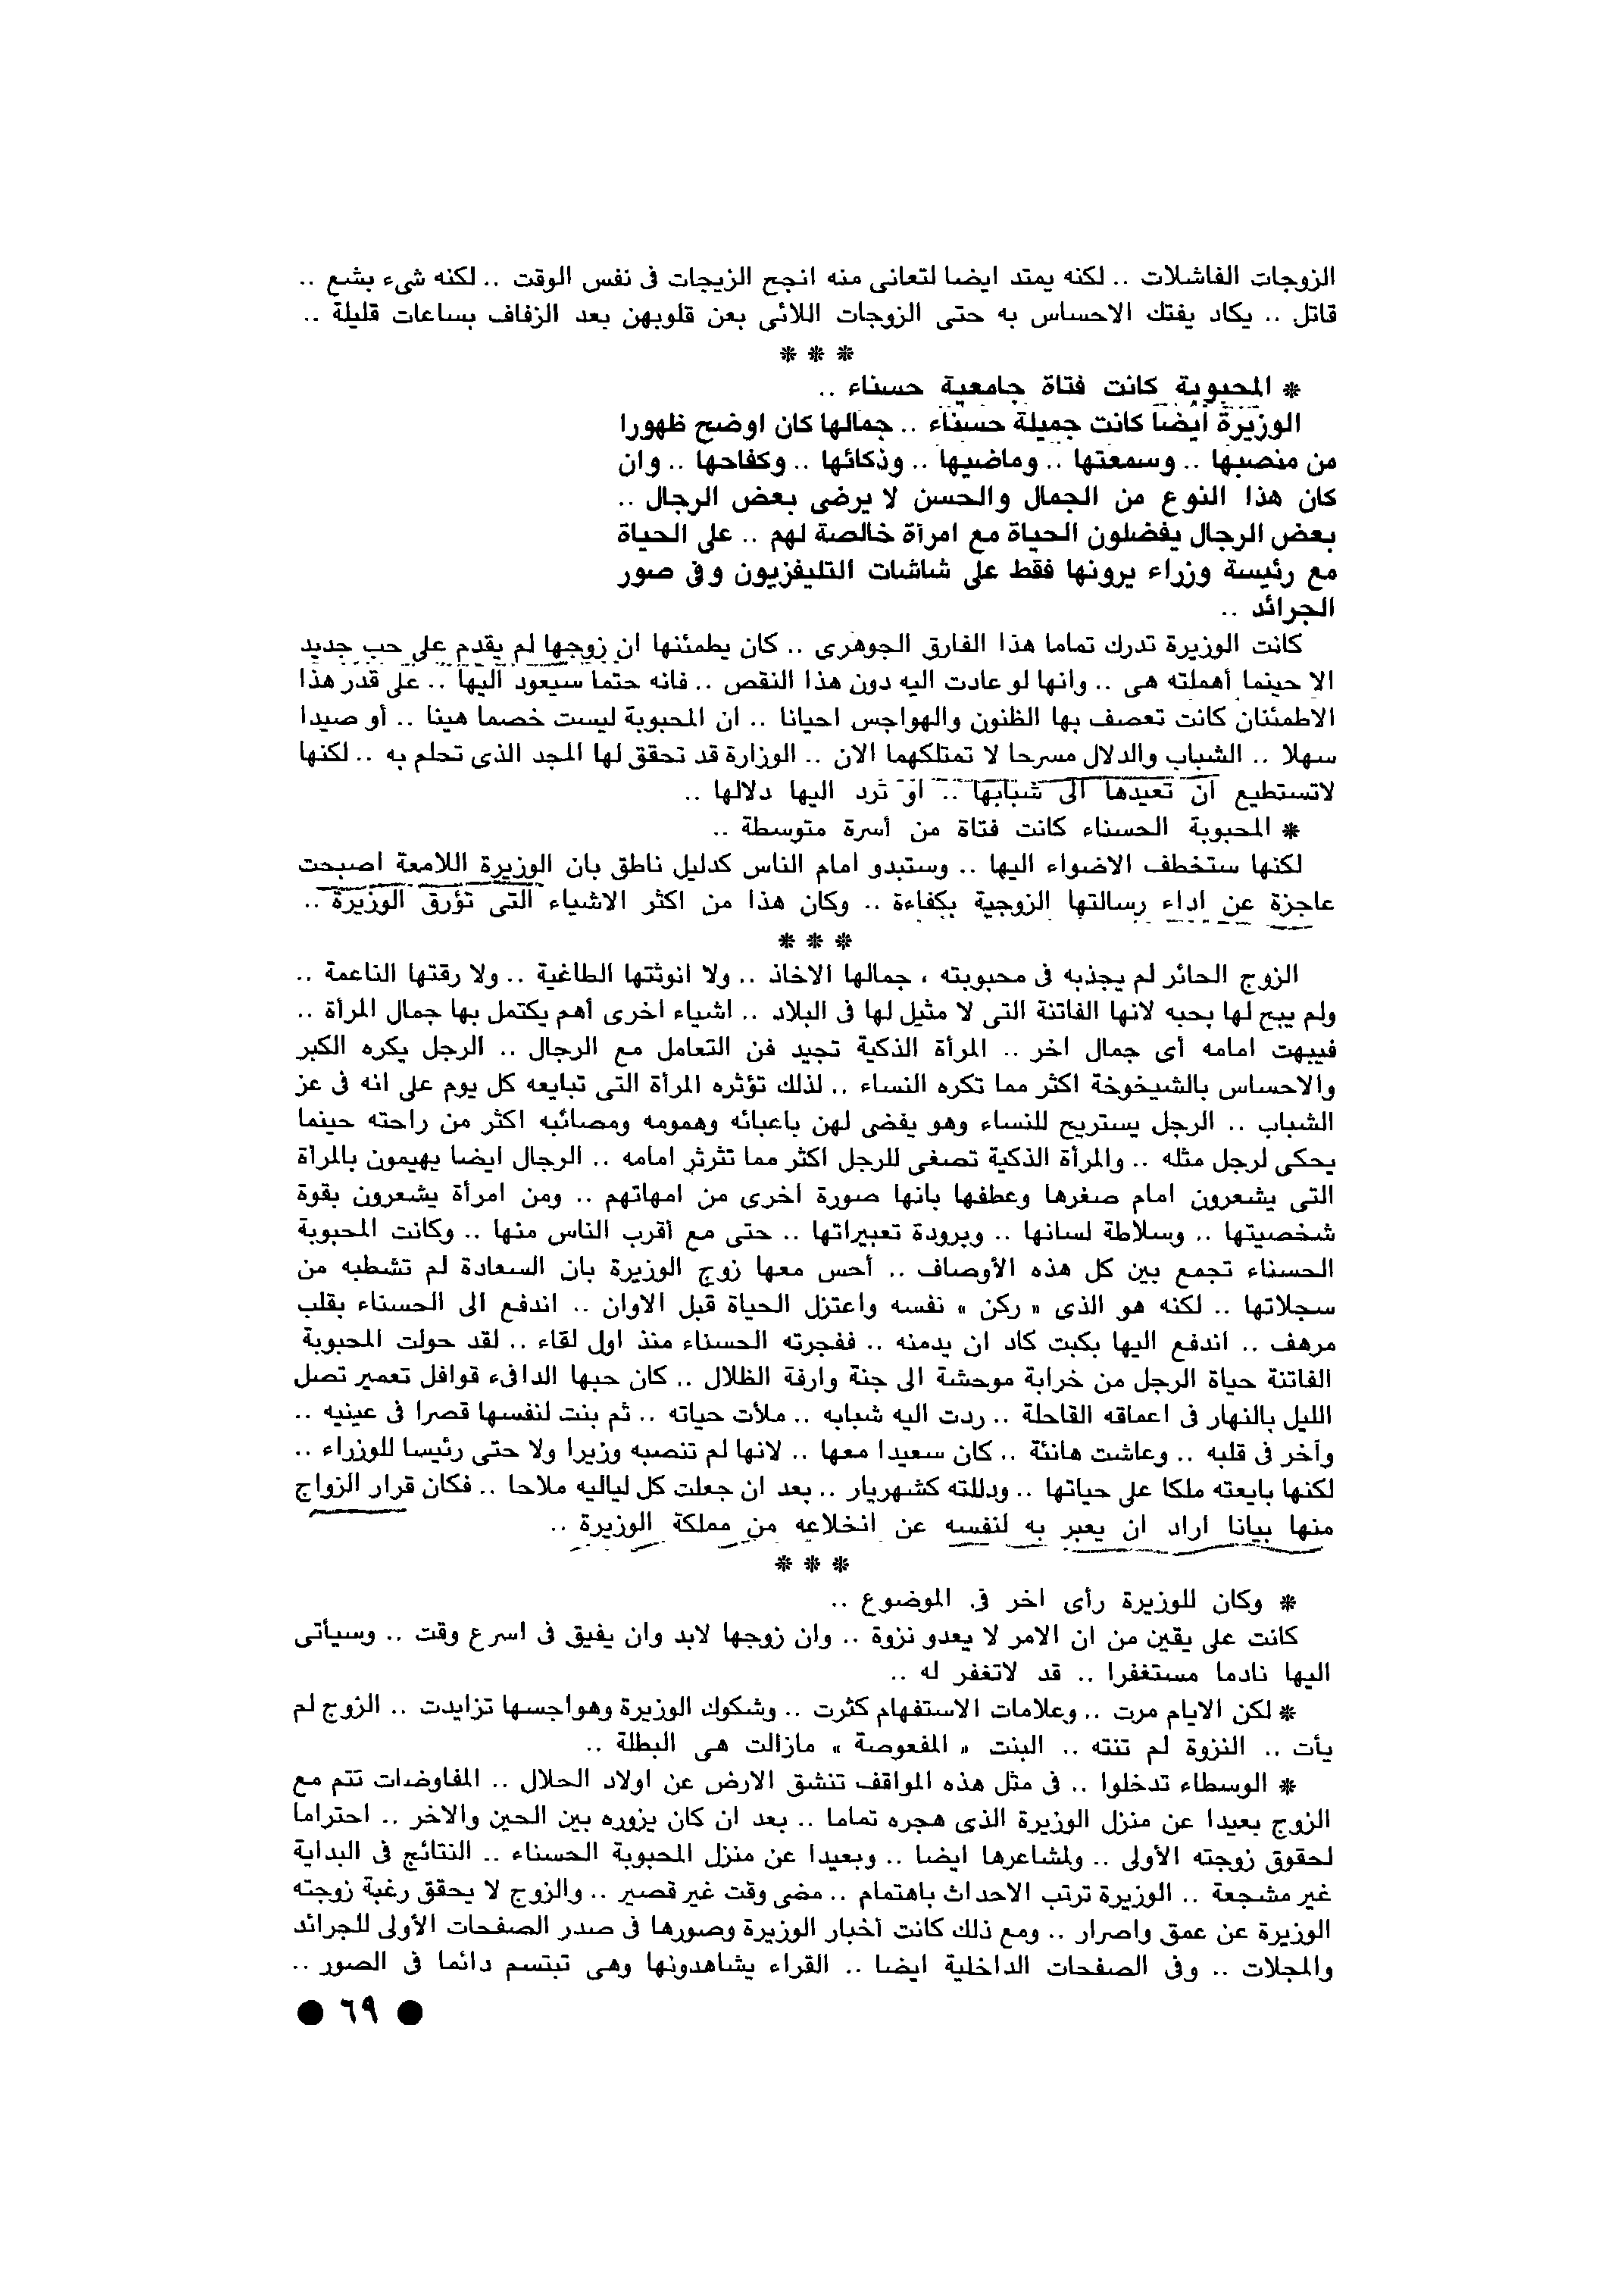 الزوجات الفاشلات .. لكنه يمتد ايضا لتعانى منه انجح الزيجات فى نفس الوقت .. لكنه شىء بشع ..
قاتل .. يكاد يفتك الاحساس به حتى الزوجات اللائى بعن قلوبهن بعد الزفاف بساعات قليلة ..
* * *
* المحبوبة كانت فتاة جامعية حسناء ..
الوزيرة أيضا كانت جميلة حسناء .. جمالها كان اوضح ظهورا
من منصبها .. وسمعتها .. وماضيها .. وذكائها .. وكفاحها .. وان
كان هذا النوع من الجمال والحسن لا يرضى بعض الرجال ..
بعض الرجال يفضلون الحياة مع امرأة خالصة لهم .. على الحياة
مع رئيسة وزراء يرونها فقط على شاشات التليفزيون وفى صور
الجرائد ..
كانت الوزيرة تدرك تماما هذا الفارق الجوهرى .. كان يطمئنها ان زوجها لم يقدم على حب جديد
الا حينما أهملته هى .. وانها لو عادت اليه دون هذا النقص .. فانه حتما سيعود اليها .. على قدر هذا
الاطمئنان كانت تعصف بها الظنون والهواجس احيانا .. ان المحبوبة ليست خصما هينا .. أو صيدا
سهلا .. الشباب والدلال مسرحا لا تمتلكهما الان .. الوزارة قد تحقق لها المجد الذى تحلم به .. لكنها
لاتستطيع ان تعيدها الى شبابها .. او ترد اليها دلالها ..
* المحبوبة الحسناء كانت فتاة من أسرة متوسطة ..
لكنها ستخطف الاضواء اليها .. وستبدو امام الناس كدليل ناطق بان الوزيرة اللامعة اصبحت
عاجزة عن اداء رسالتها الزوجية بكفاءة .. وكان هذا من اكثر الاشياء التى تؤرق الوزيرة ..
* * *
الزوج الحائر لم يجذبه فى محبوبته ، جمالها الاخاذ .. ولا انوثتها الطاغية .. ولا رقتها الناعمة ..
ولم يبح لها بحبه لانها الفاتنة التى لا مثيل لها فى البلاد .. اشياء اخرى أهم يكتمل بها جمال المرأة ..
فيبهت امامه أى جمال اخر .. المرأة الذكية تجيد فن التعامل مع الرجال .. الرجل يكره الكبر
والاحساس بالشيخوخة اكثر مما تكره النساء .. لذلك تؤثره المرأة التى تبايعه كل يوم على انه فى عز
الشباب .. الرجل يستريح للنساء وهو يفضى لهن باعبائه وهمومه ومصائبه اكثر من راحته حينما
يحكى لرجل مثله .. والمرأة الذكية تصغى للرجل اكثر مما تثرثر امامه .. الرجال ايضا يهيمون بالمرأة
التى يشعرون امام صغرها وعطفها بانها صورة اخرى من امهاتهم .. ومن امرأة يشعرون بقوة
شخصيتها .. وسلاطة لسانها .. وبرودة تعبيراتها .. حتى مع أقرب الناس منها .. وكانت المحبوبة
الحسناء تجمع بين كل هذه الأوصاف .. أحس معها زوج الوزيرة بان السعادة لم تشطبه من
سجلاتها .. لكنه هو الذى « ركن » نفسه واعتزل الحياة قبل الاوان .. اندفع الى الحسناء بقلب
مرهف .. اندفع اليها بكبت كاد ان يدمنه .. ففجرته الحسناء منذ اول لقاء .. لقد حولت المحبوبة
الفاتنة حياة الرجل من خرابة موحشة الى جنة وارفة الظلال .. كان حبها الدافىء قوافل تعمير تصل
الليل بالنهار فى اعماقه القاحلة .. ردت اليه شبابه .. ملأت حياته .. ثم بنت لنفسها قصرا فى عينيه ..
وآخر فى قلبه .. وعاشت هانئة .. كان سعيدا معها .. لانها لم تنصبه وزيرا ولا حتى رئيسا للوزراء ..
لكنها بايعته ملكا على حياتها .. ودللته كشهريار .. بعد ان جعلت كل لياليه ملاحا .. فكان قرار الزواج
منها بيانا اراد ان يعبر به لنفسه عن انخلاعه من مملكة الوزيرة ..
* * *
* وكان للوزيرة رأى اخر فى الموضوع ..
كانت على يقين من ان الامر لا يعدو نزوة .. وان زوجها لابد وان يفيق فى اسرع وقت .. وسيأتى
اليها نادما مستغفرا .. قد لاتغفر له ..
* لكن الايام مرت .. وعلامات الاستفهام كثرت .. وشكوك الوزيرة وهواجسها تزايدت .. الزوج لم
يأت .. النزوة لم تنته .. البنت « المفعوصة » مازالت هى البطلة ..
* الوسطاء تدخلوا .. فى مثل هذه المواقف تنشق الارض عن اولاد الحلال .. المفاوضات تتم مع
الزوج بعيدا عن منزل الوزيرة الذى هجره تماما .. بعد ان كان يزوره بين الحين والاخر .. احتراما
لحقوق زوجته الأولى .. ولمشاعرها ايضا .. وبعيدا عن منزل المحبوبة الحسناء .. النتائج فى البداية
غير مشجعة .. الوزيرة ترتب الاحداث باهتمام .. مضى وقت غير قصير .. والزوج لا يحقق رغبة زوجته
الوزيرة عن عمق واصرار .. ومع ذلك كانت أخبار الوزيرة وصورها فى صدر الصفحات الأولى للجرائد
والمجلات .. وفى الصفحات الداخلية ايضا .. القراء يشاهدونها وهى تبتسم دائما فى الصور ..
● ٦٩ ●